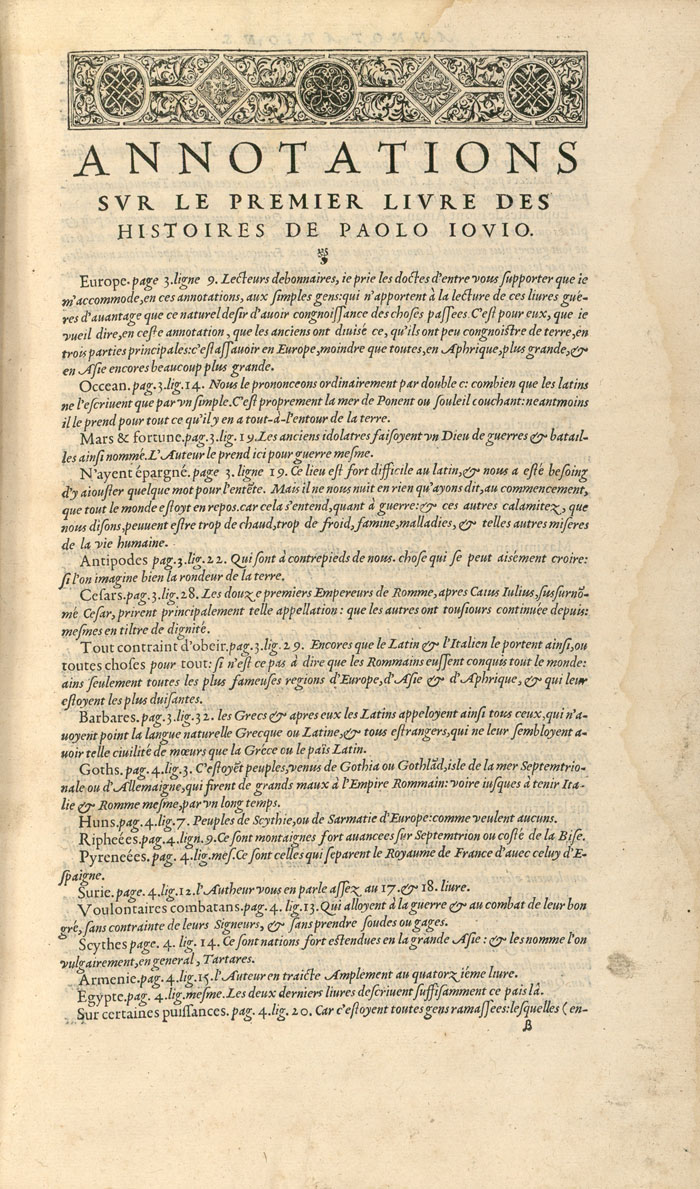 ANNOTATIONS
SVR LE PREMIER LIVRE DES
HISTOIRES DE PAOLO IOVIO.
Europe. page 3. ligne 9. Lecteurs debonnaires, ie prie les doctes d'entre vous ſupporter que ie
m'accommode, en ces annotations, aux ſimples gens: qui n'apportent à la lecture de ces liures gue-
res d'auantage que ce naturel deſir d'auoir congnoiſſance des choſes paſſees. C'eſt pour eux, que ie
vueil dire, en ceſte annotation, que les anciens ont diuisé ce, qu'ils ont peu congnoiſtre de terre, en
trois parties principales: c'eſt aſſauoir en Europe, moindre que toutes, en Aphrique, plus grande, &
en Aſie encores beaucoup plus grande.
Occean. pag. 3. lig. 14. Nous le prononceons ordinairement par double c: combien que les latins
ne l'eſcriuent que par vn ſimple. C'eſt proprement la mer de Ponent ou ſouleil couchant: neantmoins
il le prend pour tout ce qu'il y en a tout-à-l'entour de la terre.
Mars & fortune. pag. 3. lig. 19. Les anciens idolatres faiſoyent vn Dieu de guerres & batail-
les ainſi nommé. L'Auteur le prend ici pour guerre meſme.
N'ayent épargné. page 3. ligne 19. Ce lieu eſt fort difficile au latin, & nous a eſté beſoing
d'y aiouſter quelque mot pour l'entēte. Mais il ne nous nuit en rien qu'ayons dit, au commencement,
que tout le monde eſtoyt en repos. car cela s'entend, quant à guerre: & ces autres calamitez, que
nous diſons, peuuent eſtre trop de chaud, trop de froid, famine, malladies, & telles autres miſeres
de la vie humaine.
Antipodes pag. 3. lig. 22. Qui ſont à contrepieds de nous. choſe qui ſe peut aisément croire:
ſi l'on imagine bien la rondeur de la terre.
Ceſars. pag. 3. lig. 28. Les douze premiers Empereurs de Romme, apres Caius Iulius, ſuſſurnō-
mé Ceſar, prirent principalement telle appellation: que les autres ont touſiours continuée depuis:
meſmes en tiltre de dignité.
Tout contraint d'obeir. pag. 3. lig. 29. Encores que le Latin & l'Italien le portent ainſi, ou
toutes choſes pour tout: ſi n'eſt ce pas à dire que les Rommains euſſent conquis tout le monde:
ains ſeulement toutes les plus fameuſes regions d'Europe, d'Aſie & d'Aphrique, & qui leur
eſtoyent les plus duiſantes.
Barbares. pag. 3. lig. 32. les Grecs & apres eux les Latins appeloyent ainſi tous ceux, qui n'a-
uoyent point la langue naturelle Grecque ou Latine, & tous eſtrangers, qui ne leur ſembloyent a-
uoir telle ciuilité de mœurs que la Gréce ou le païs Latin.
Goths. pag. 4. lig. 3. C'eſtoyēt peuples, venus de Gothia ou Gothlād, isle de la mer Septemtrio-
nale ou d'Allemaigne, qui firent de grands maux à l'Empire Rommain: voire iuſques à tenir Ita-
lie & Romme meſme, par vn long temps.
Huns. pag. 4. lig. 7. Peuples de Scythie, ou de Sarmatie d'Europe: comme veulent aucuns.
Ripheées. pag. 4. lign. 9. Ce ſont montaignes fort auancees ſur Septemtrion ou coſté de la Biſe.
Pyreneées. pag. 4. lig. mes. Ce ſont celles qui ſeparent le Royaume de France d'auec celuy d'E-
ſpaigne.
Surie. page. 4. lig. 12. l'Autheur vous en parle aſſez au 17. & 18. liure.
Voulontaires combatans. pag. 4. lig. 13. Qui alloyent à la guerre & au combat de leur bon
gré, ſans contrainte de leurs Signeurs, & ſans prendre ſoudes ou gages.
Scythes page. 4. lig. 14. Ce ſont nations fort eſtendues en la grande Aſie: & les nomme l'on
vulgairement, en general, Tartares.
Armenie. pag. 4. lig. 15. l'Auteur en traicte Amplement au quatorzieme liure.
Egypte. pag. 4. lig. meſme. Les deux derniers liures deſcriuent ſuffiſamment ce païs là.
Sur certaines puiſſances. pag. 4. lig. 20. Car c'eſtoyent toutes gens ramaſſees: leſquelles (en-
B